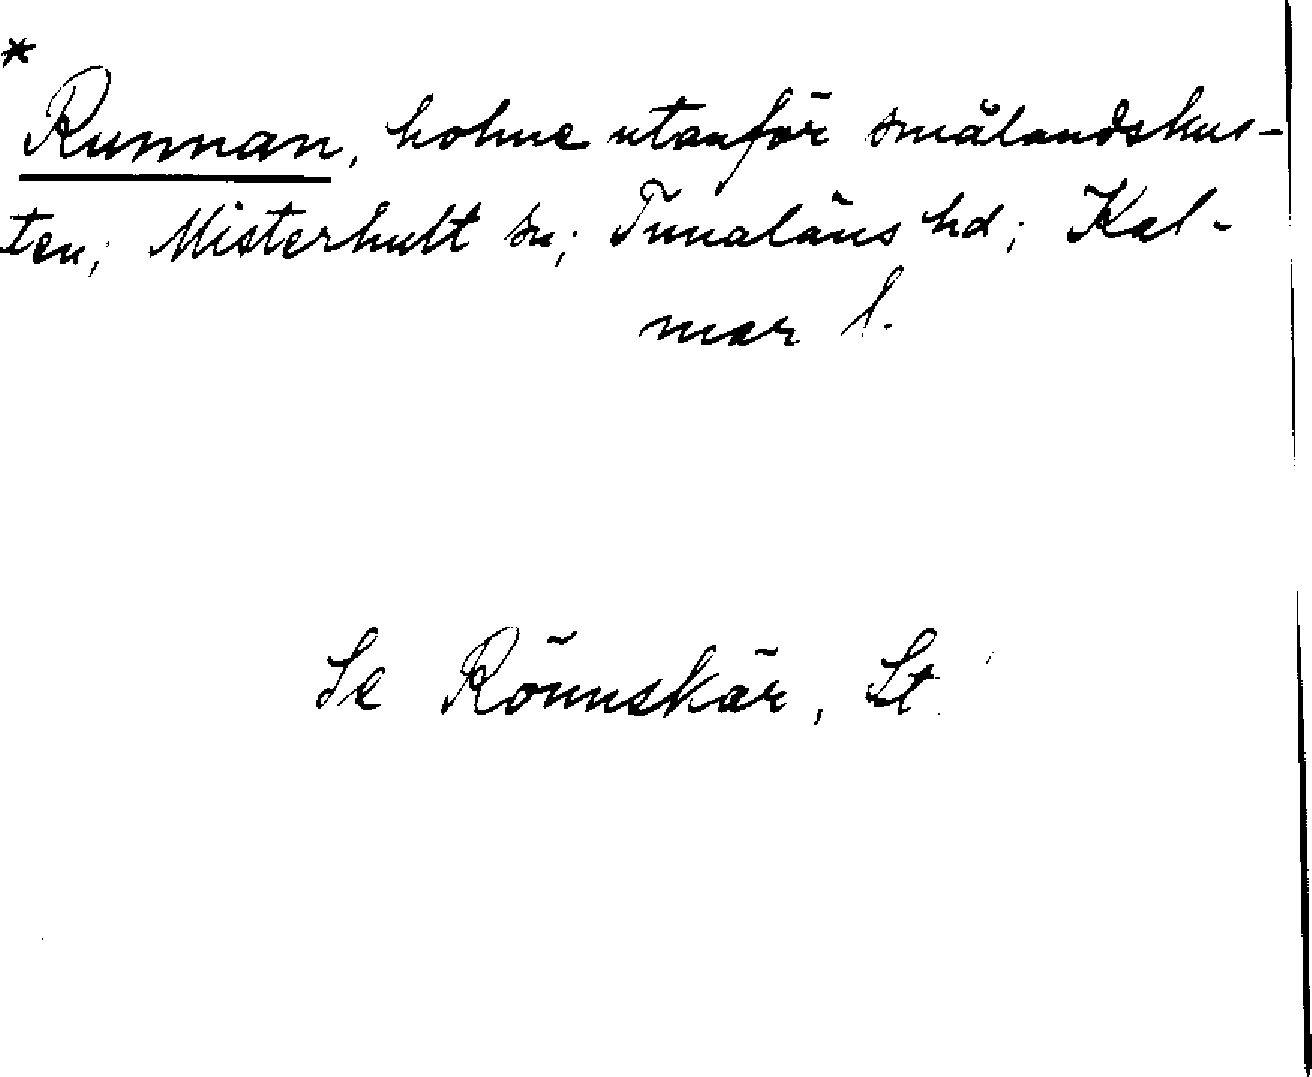 *
Runnan, holme utanför smålandskus-
ten; Misterhult sn; Tunaläns hd; Kal-
mar l.
Se Rönnskär, St.